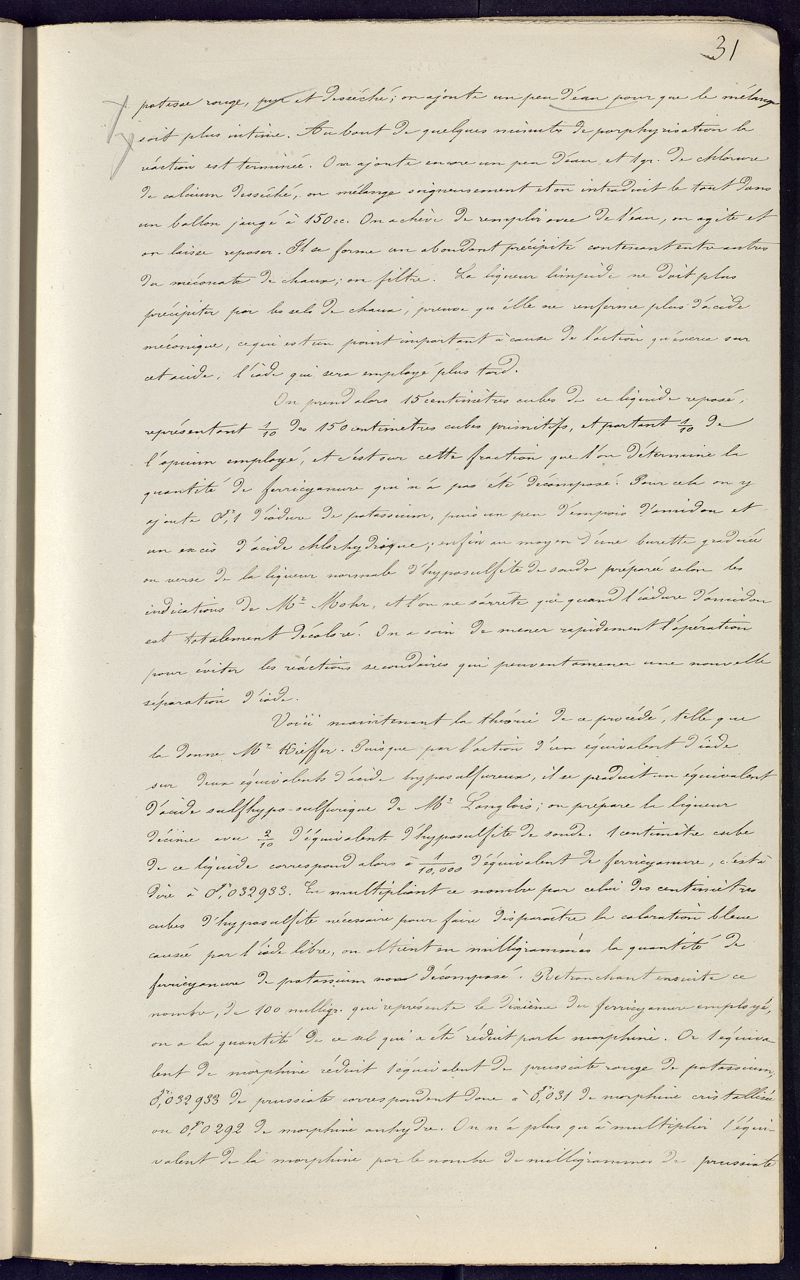 31
potasse rouge, pur et desséché; on ajoute un peu d'eau pour que le mélange
soit plus intime. Au bout de quelques minutes de porphyrisation la
réaction est terminée. On ajoute encore un peu d'eau et 1gr. de chlorure
de calcium desséché, on mélange soigneusement et on introduit le tout dans
un ballon jaugé à 150cc. On achève de remplir avec de l'eau, on agite et
on laisse reposer. Il se forme un abondant précipité contenant entre autres
du méconate de chaux; on filtre. La liqueur limpide ne doit plus
précipiter par les sels de chaux, preuve qu'elle ne renferme plus d'acide
méconique, ce qui est un point important à cause de l'action qu'exerce sur
cet acide, l'iode qui sera employé plus tard.
On prend alors 15 centimètres cubes de ce liquide reposé,
représentant 1/10 des 150 centimètres cubes primitifs, et partant 1/10 de
l'opium employé, et c'est sur cette fraction que l'on détermine la
quantité de ferricyanure qui n'a pas été décomposé. Pour cela on y
ajoute 0gr,1 d'iodure de potassium, puis un peu d'empois d'amidon et
un excès d'acide chlorhydrique; enfin au moyen d'une burette graduée
on verse de la liqueur normale d'hyposulfite de soude préparé selon les
indications de Mr Mohr, et l'on ne s'arrête que quand l'iodure d'amidon
est totalement décoloré. On a soin de mener rapidement l'opération
pour éviter les réactions secondaires qui peuvent amener une nouvelle
séparation d'iode.
Voici maintenant la théorie de ce procédé, telle que
la donne Mr Kieffer. Puisque par l'action d'un équivalent d'iode
sur deux équivalents d'acide hyposulfureux, il se produit un équivalent
d'acide sulfhypo-sulfurique de Mr Langlois; on prépare la liqueur
décime avec 2/10 d'équivalent d'hyposulfite de soude. 1 centimètre cube
de ce liquide correspond alors à 1/10,000 d'équivalent de ferricyanure, c'est à
dire à 0gr,032933. En multipliant ce nombre par celui des centimètres
cubes d'hyposulfite nécessaire pour faire disparaître la coloration bleue
causée par l'iode libre, on obtient en milligrammes la quantité de
ferricyanure de potassium non décomposé. Retranchant ensuite ce
nombre, de 100 milligr. qui représente le dixième du ferricyanure employé,
on a la quantité de ce sel qui a été réduit par la morphine. Or 1 équiva-
lent de morphine réduit 1 équivalent de prussiate rouge de potassium,
0gr,032933 de prussiate correspondent donc à 0gr,031 de morphine cristallisée
ou 0gr,0292 de morphine anhydre. On n'a plus qu'à multiplier l'équi-
valent de la morphine par le nombre de milligrammes de prussiate